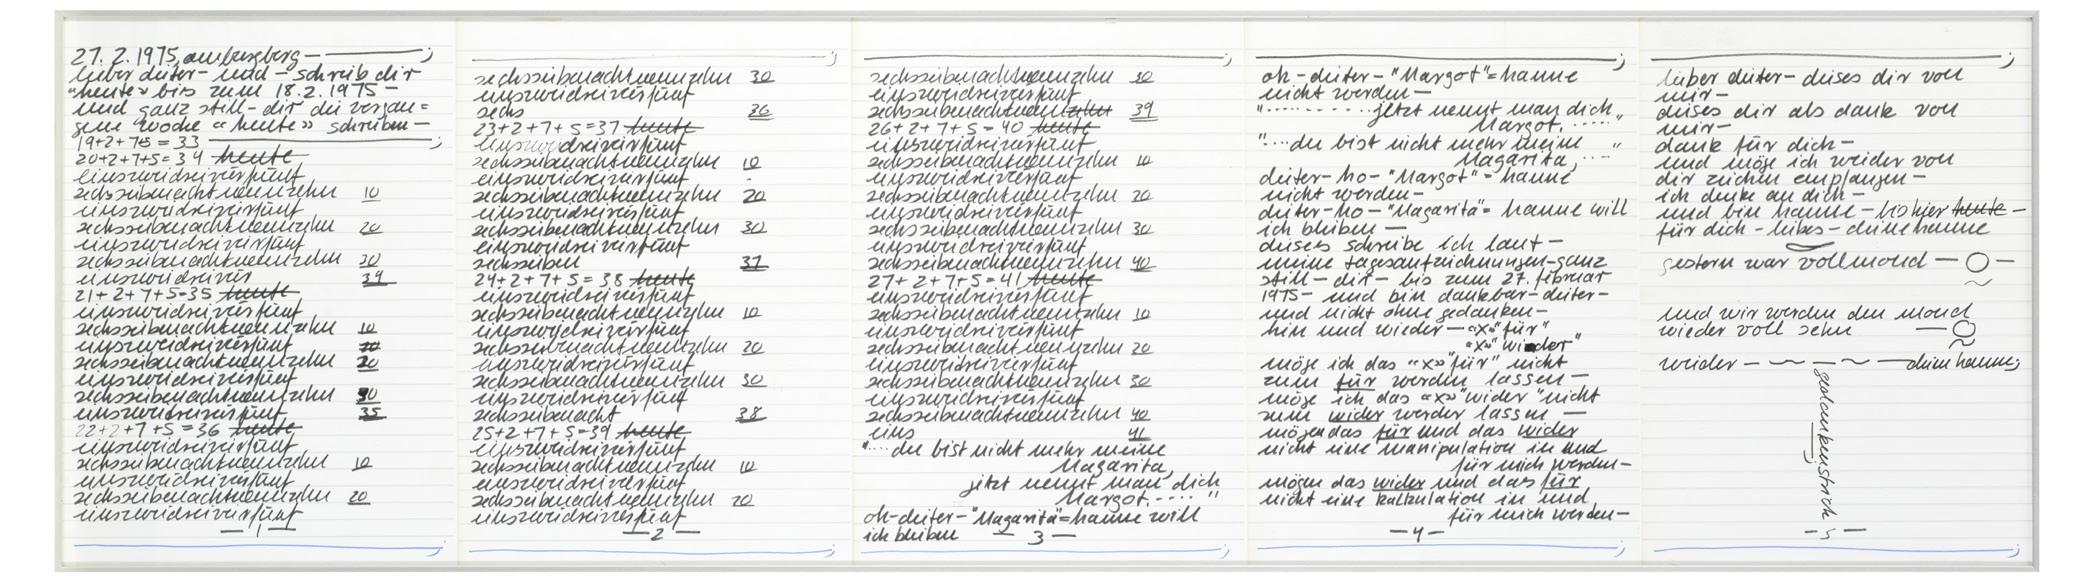 27. 2. 1975, am burgberg —
lieber dieter — und — schreib dir
"heute" bis zum 18.2.1975 —
und ganz still — dir die vergan=
gene woche «heute» schreiben —
19+2+7+5 = 33
20+2+7+5 = 34 heute
einszweidreivierfünf
sechssiebenachtneunzehn 10
einszweidreivierfünf
sechssiebenachtneunzehn 20
einszweidreivierfünf
sechssiebenachtneunzehn 30
einszweidreivier 34
21+2+7+5=35 heute
einszweidreivierfünf
sechssiebenachtneunzehn 10
einszweidreivierfünf
sechssiebenachtneunzehn 20
einszweidreivierfünf
sechssiebenachtneunzehn 30
einszweidreivierfünf 35
22+2+7+5=36 heute
einszweidreivierfünf
sechssiebenachtneunzehn 10
einszweidreivierfünf
sechssiebenachtneunzehn 20
einszweidreivierfünf
— 1 —
sechssiebenachtneunzehn 30
einszweidreivierfünf
sechs 36
23+2+7+5=37 heute
einszweidreivierfünf
sechssiebenachtneunzehn 10
einszweidreivierfünf
sechssiebenachtneunzehn 20
einszweidreivierfünf
sechssiebenachtneunzehn 30
einszweidreivierfünf
sechssieben 37
24+2+7+5=38 heute
einszweidreivierfünf
sechssiebenachtneunzehn 10
einszweidreivierfünf
sechssiebenachtneunzehn 20
einszweidreivierfünf
sechssiebenachtneunzehn 30
einszweidreivierfünf
sechssiebenacht 38
25+2+7+5=39 heute
einszweidreivierfünf
sechssiebenachtneunzehn 10
einszweidreivierfünf
sechssiebenachtneunzehn 20
einszweidreivierfünf
— 2 —
sechssiebenachtneunzehn 30
einszweidreivierfünf
sechssiebenachtneunzehn 39
26+2+7+5=40 heute
einszweidreivierfünf
sechssiebenachtneunzehn 10
einszweidreivierfünf
sechssiebenachtneunzehn 20
einszweidreivierfünf
sechssiebenachtneunzehn 30
einszweidreivierfünf
sechssiebenachtneunzehn 40
27+2+7+5=41 heute
einszweidreivierfünf
sechssiebenachtneunzehn 10
einszweidreivierfünf
sechssiebenachtneunzehn 20
einszweidreivierfünf
sechssiebenachtneunzehn 30
einszweidreivierfünf
sechssiebenachtneunzehn 40
eins 41
"... du bist nicht mehr meine
Magarita,
jetzt nennt man dich
Margot. ...."
oh-dieter-"Magarita"=hanne will
ich bleiben
— 3 —
oh-dieter-"Margot"=hanne
nicht werden—
".......... jetzt nennt man dich
Margot. ....."
"... du bist nicht mehr meine
Magarita, ...."
dieter-ho-"Margot"=hanne
nicht werden—
dieter-ho-"Magarita"=hanne will
ich bleiben—
dieses schreibe ich laut—
meine tagesaufzeichnungen-ganz
still-dir-bis zum 27. februar
1975-und bin dankbar-dieter-
und nicht ohne gedanken-
hin und wieder—«x» "für"
«x» "wieder"
möge ich das «x» "für" nicht
zum für werden lassen—
möge ich das «x» "wider" nicht
zum wider werden lassen—
mögen das für und das wider
nicht eine manipulation in und
für mich werden—
mögen das wider und das für
nicht eine kalkulation in und
für mich werden—
— 4 —
lieber dieter-dieses dir von
mir-
dieses dir als dank von
mir-
dank für dich-
und möge ich wieder von
dir zeichen empfangen-
ich denke an dich-
und bin hanne-bis hier heute-
für dich-liebes-deine hanne
gestern war vollmond —○—
und wir werden den mond
wieder voll sehn —○
wieder — ~ — ~ — dein hanne;
gedankenstrich
— 5 —